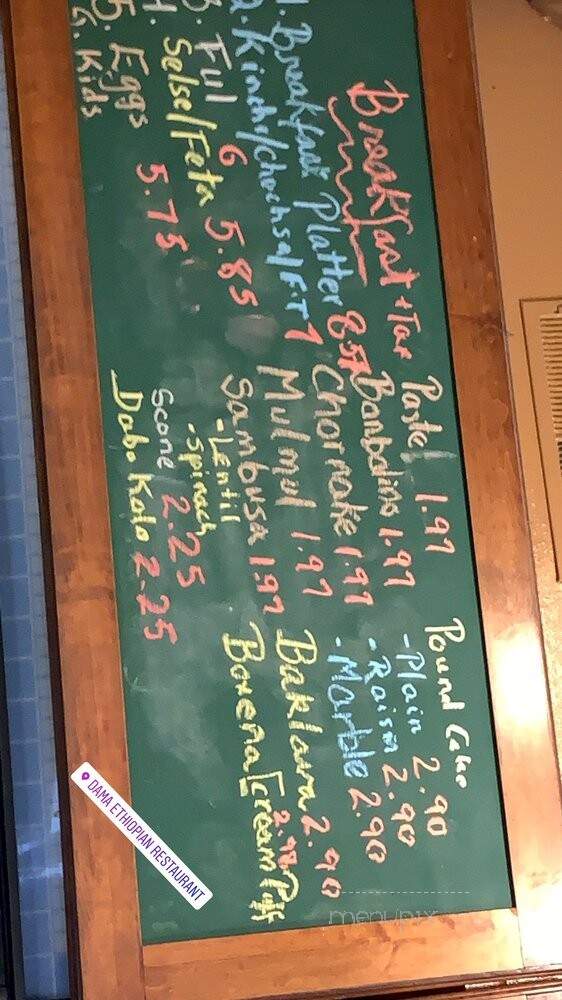 Breakfast + Tax
1. Breakfast Platter 8.50
2. Kinche/Chechsa/F.T 7
3. Ful 6
4. Selse/Feta 5.85
5. Eggs 5.75
6. Kids
Pastel 1.97
Bonbolino 1.97
Chornake 1.97
Mulmul 1.97
Sambusa 1.97
-Lentil
-Spinach
Scone 2.25
Dabo Kolo 2.25
Pound Cake
-Plain 2.90
-Raisin 2.90
-Marble 2.90
Baklava 2.90
Bonena [Cream Puff
2.98
DAMA ETHIOPIAN RESTAURANT
menupix